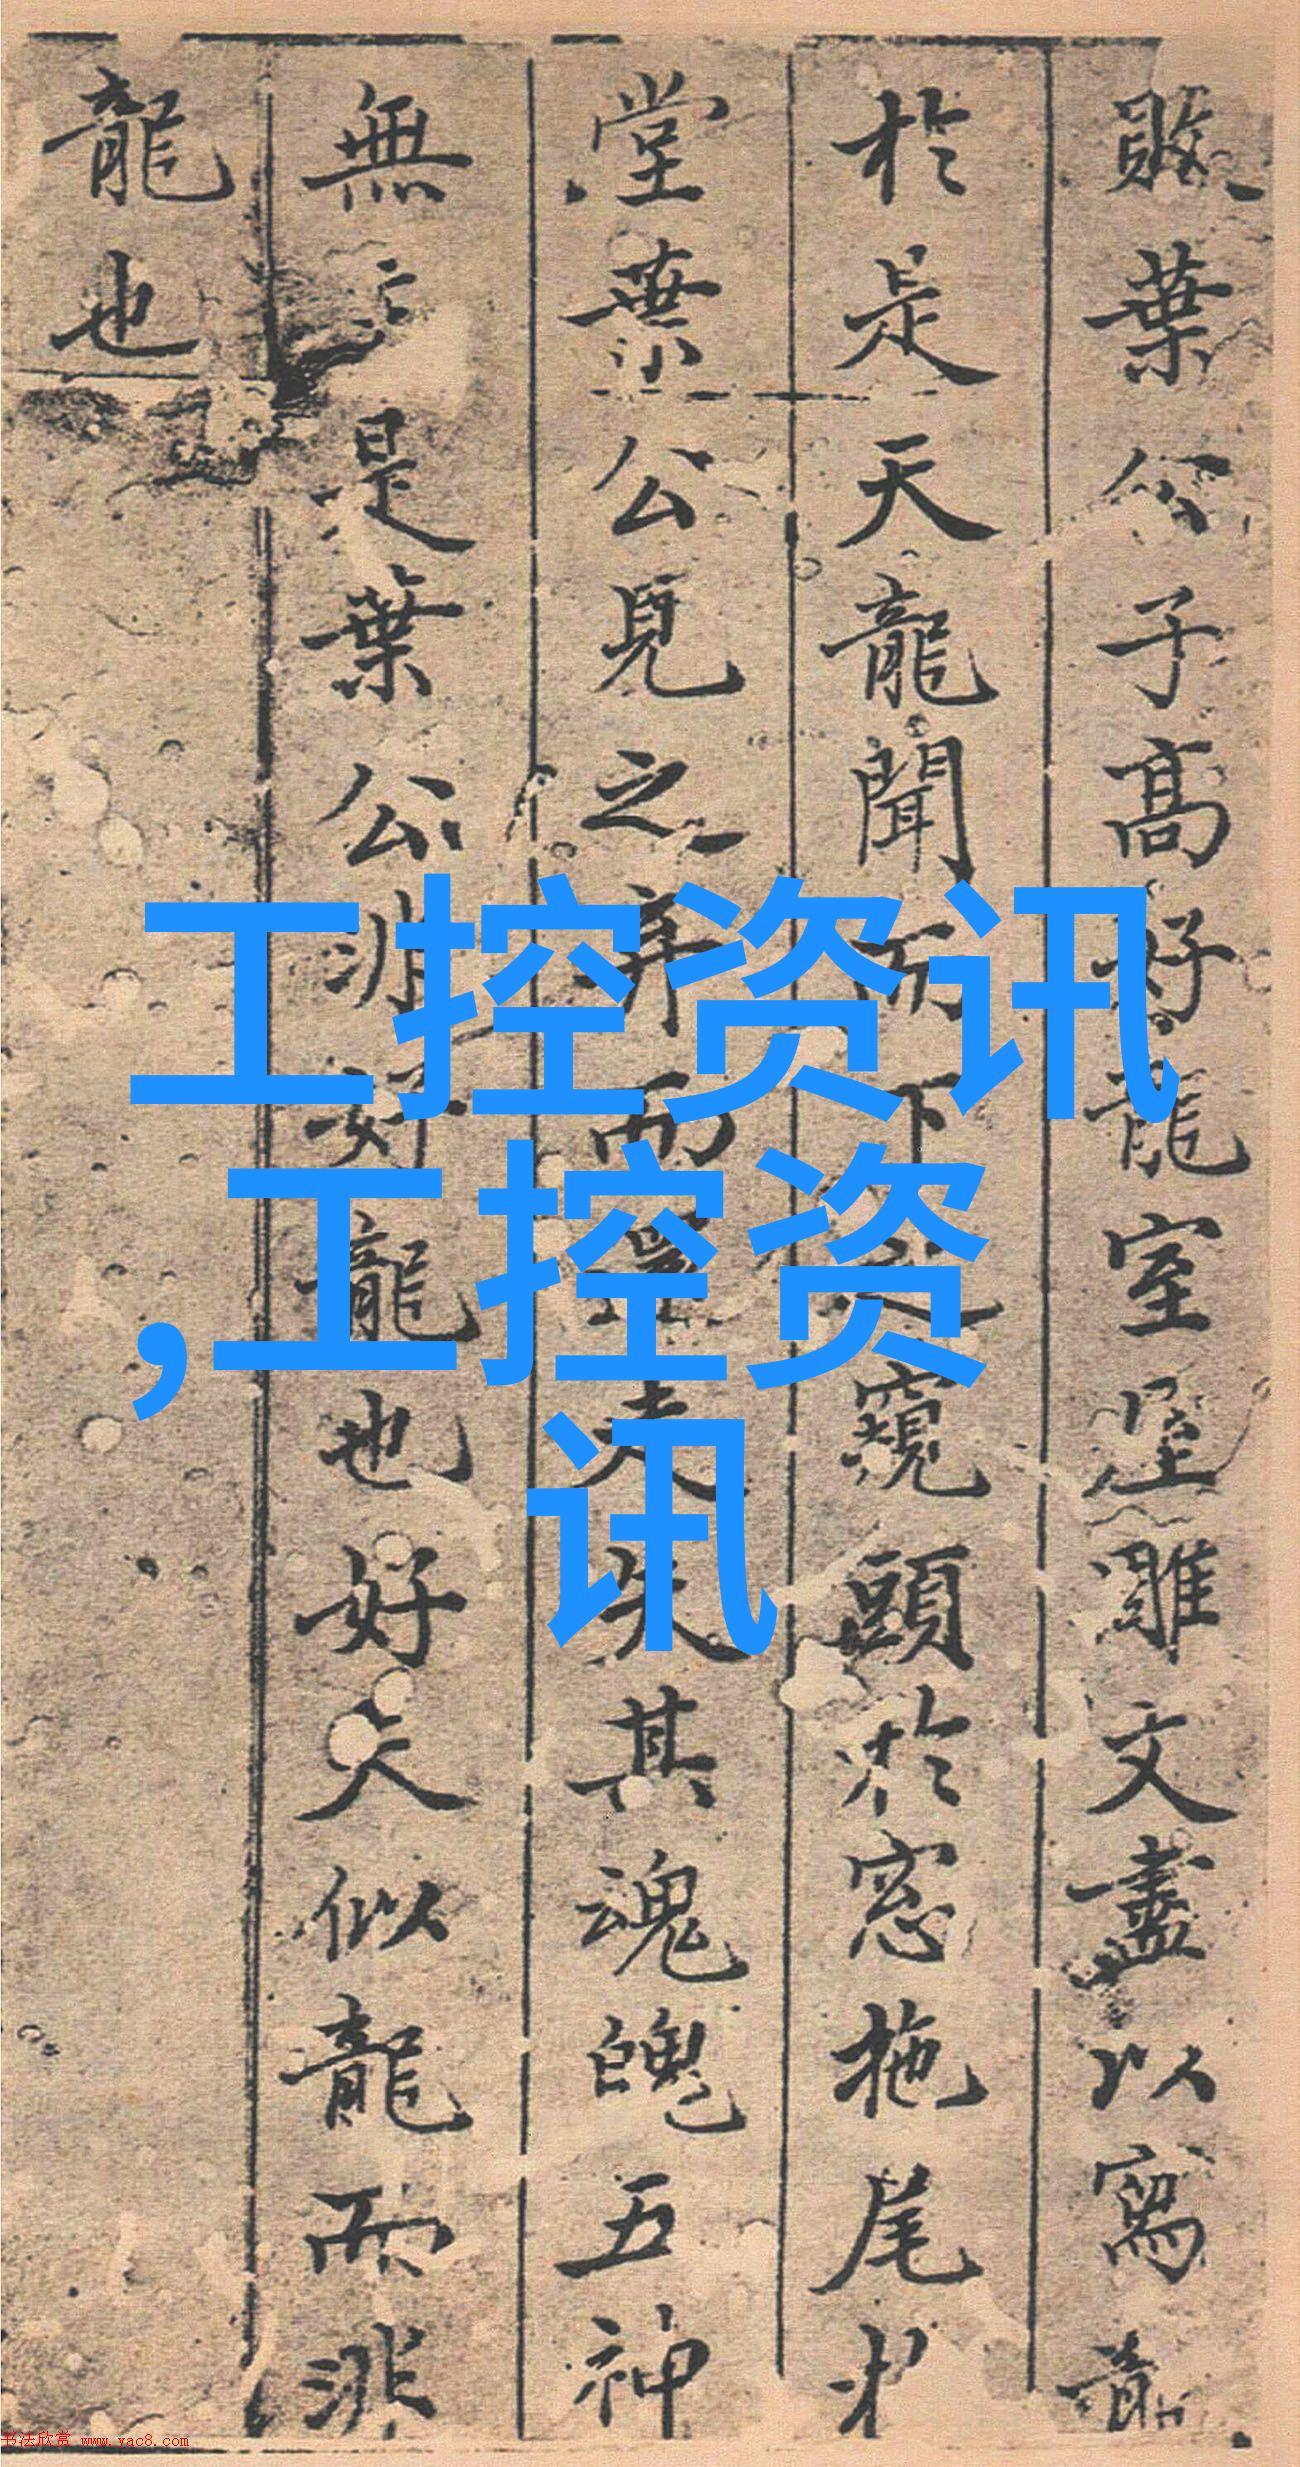 敗葉公子高好龍室堊雕文盡以寫龍
於是天龍聞而下之窺頭於窓拖尾
堂葉公見之弃而還走失其魂魄五神
無主是葉公非好龍也好夫似龍而非
龍也
工控资讯
,工控资
讯
书法欣赏 www.yac8.com